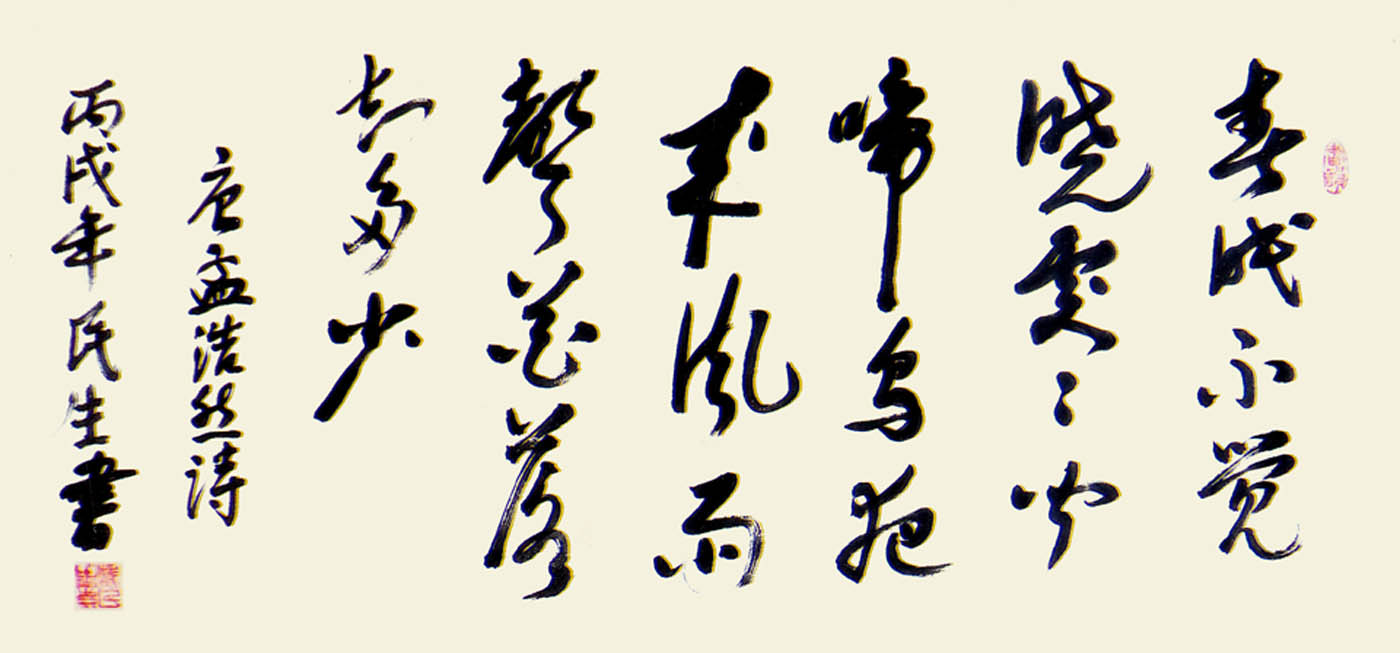 春眠不觉
晓處〻闻
啼鸟夜
来风雨
聲花落
知多少
唐孟浩然诗
丙戌年民生書